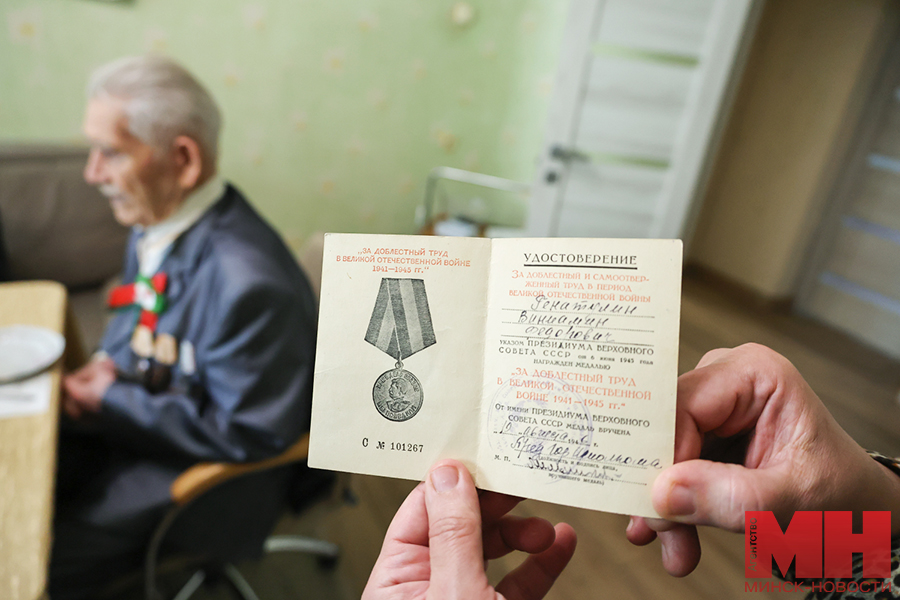 "ЗА ДОБЛЕСТНЫЙ ТРУД
В ВЕЛИКОЙ ОТЕЧЕСТВЕННОЙ ВОЙНЕ
1941—1945 гг."
С № 101267
УДОСТОВЕРЕНИЕ
ЗА ДОБЛЕСТНЫЙ И САМООТВЕР-
ЖЕННЫЙ ТРУД В ПЕРИОД
ВЕЛИКОЙ ОТЕЧЕСТВЕННОЙ ВОЙНЫ
Вениамин
Федорович
УКАЗОМ ПРЕЗИДИУМА ВЕРХОВНОГО
СОВЕТА СССР от 6 июня 1945 года
НАГРАЖДЕН МЕДАЛЬЮ
"ЗА ДОБЛЕСТНЫЙ ТРУД
В ВЕЛИКОЙ ОТЕЧЕСТВЕННОЙ
ВОЙНЕ 1941—1945 гг."
От имени ПРЕЗИДИУМА ВЕРХОВНОГО
СОВЕТА СССР МЕДАЛЬ ВРУЧЕНА
М. П.
вручившего медаль)
АГЕНТСТВО
МН
МИНСК-НОВОСТИ